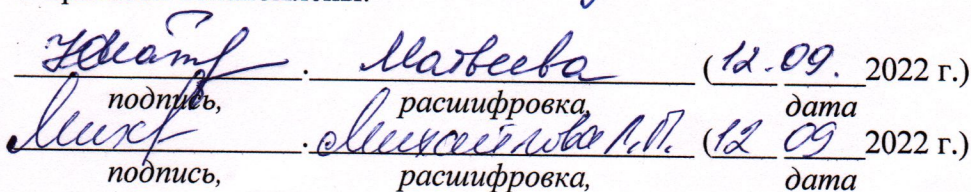 Матвеева (12.09. 2022 г.)
подпись, расшифровка, дата
Михайлова Л.П. (12 09 2022 г.)
подпись, расшифровка, дата